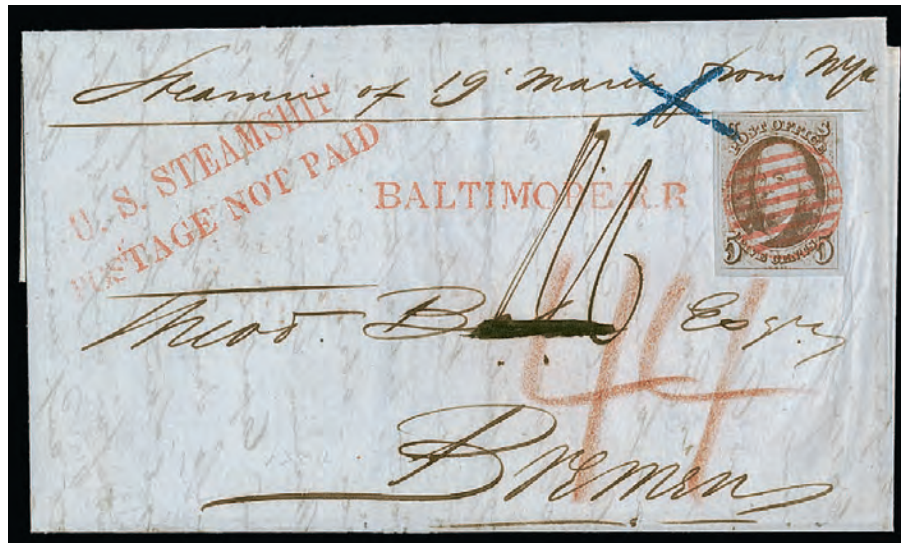 Steamer of 19 March from NYk
U. S. STEAMSHIP
POSTAGE NOT PAID
BALTIMORE R.R
POST OFFICE
5 FIVE CENTS 5
Theod B Esqr
44
Bremen